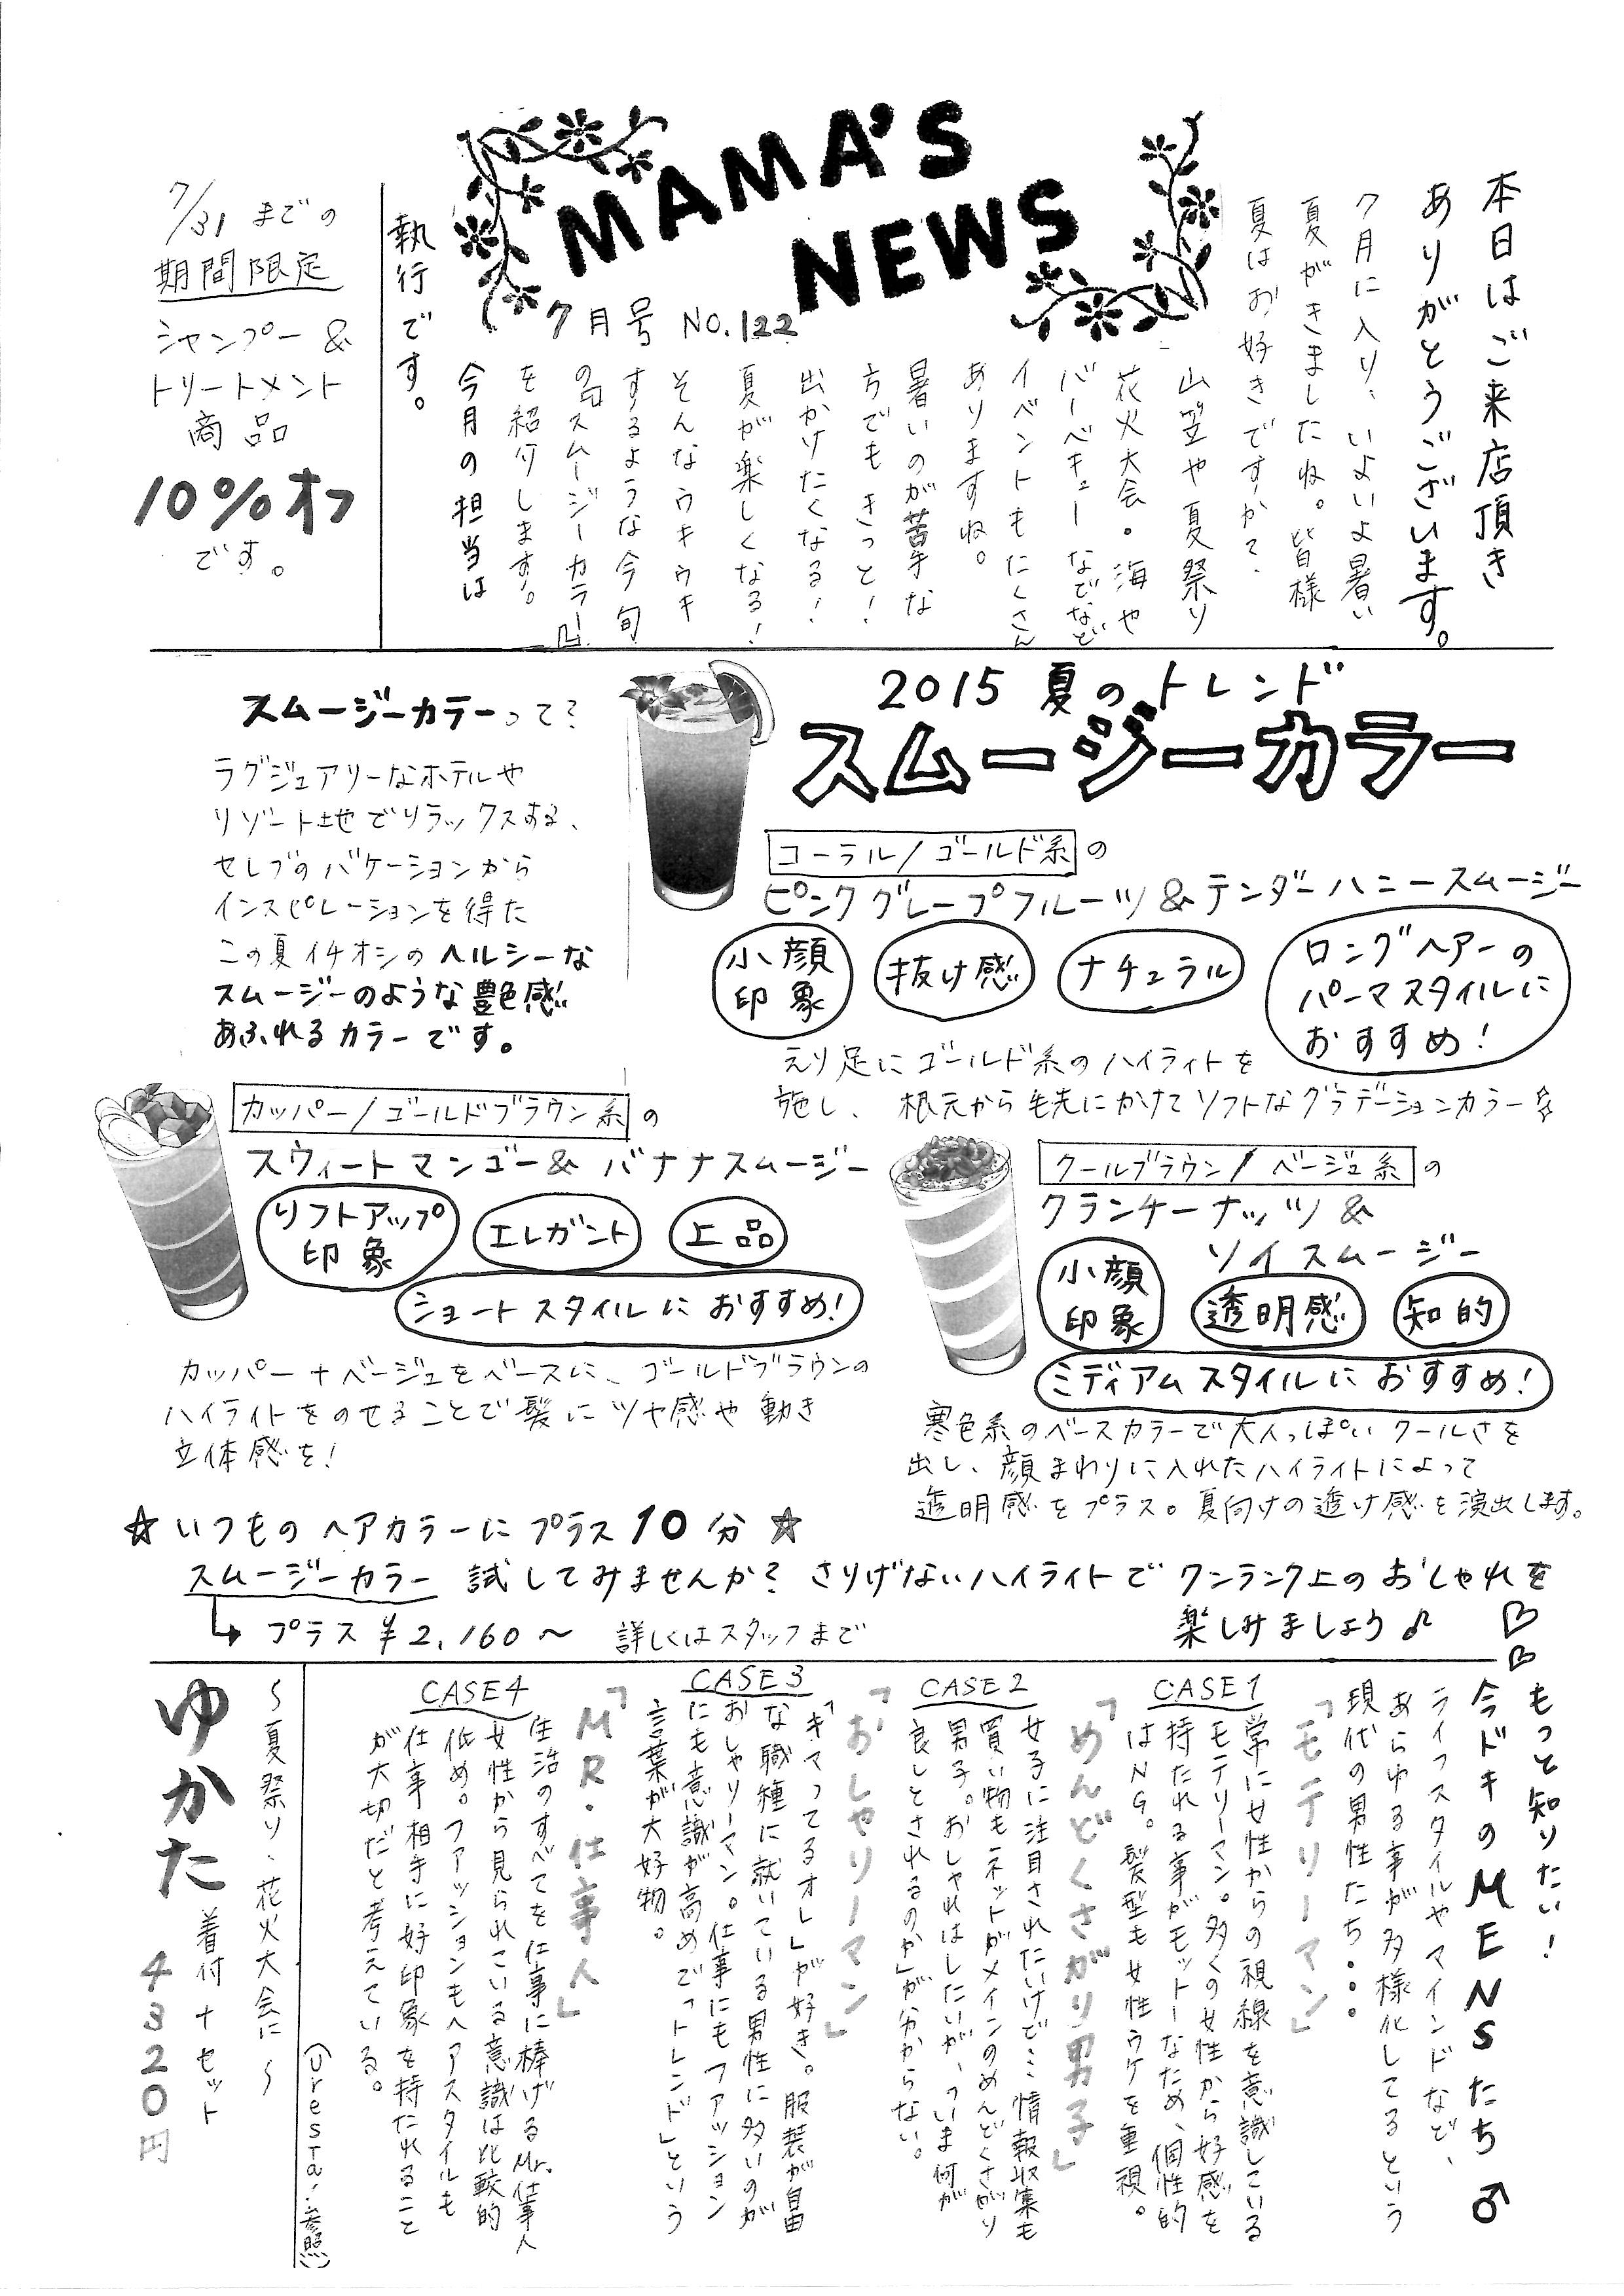 MAMA'S
NEWS
7月号 NO.122
本日はご来店頂き
ありがとうございます。
7月に入り、いよいよ暑い
夏がきましたね。皆様
夏はお好きですか?
山笠や夏祭り
花火大会・海や
バーベキューなでなど
イベントもたくさん
ありますね。
暑いのが苦手な
方でもきっと!
出かけたくなる!
夏が楽しくなる!
そんなウキウキ
するような今旬
の『スムージーカラー』
を紹介します。
今月の担当は
執行です。
7/31までの
期間限定
シャンプー&
トリートメント
商品
10%オフ
です。
2015 夏のトレンド
スムージーカラー
スムージーカラーって?
ラグジュアリーなホテルや
リゾート地でリラックスする、
セレブのバケーションから
インスピレーションを得た
この夏イチオシのヘルシーな
スムージーのような艶色感
あふれるカラーです。
コーラル/ゴールド系の
ピンクグレープフルーツ&テンダーハニースムージー
小顔
印象
抜け感
ナチュラル
ロングヘアーの
パーマスタイルに
おすすめ!
えり足にゴールド系のハイライトを
施し、根元から毛先にかけてソフトなグラデーションカラー☆
カッパー/ゴールドブラウン系の
スウィートマンゴー&バナナスムージー
リフトアップ
印象
エレガント
上品
ショートスタイルにおすすめ!
カッパー+ベージュをベースに、ゴールドブラウンの
ハイライトをのせることで髪にツヤ感や動き
立体感を!
クールブラウン/ベージュ系の
クランチーナッツ&
ソイスムージー
小顔
印象
透明感
知的
ミディアムスタイルにおすすめ!
寒色系のベースカラーで大人っぽいクールさを
出し、顔まわりに入れたハイライトによって
透明感をプラス。夏向けの透け感を演出します。
☆いつものヘアカラーにプラス10分☆
スムージーカラー 試してみませんか?さりげないハイライトでワンランク上のおしゃれを
楽しみましょう♪
↳プラス¥2,160~ 詳しくはスタッフまで
もっと知りたい!
今ドキのMENSたち♂
ライフスタイルやマインドなど、
あらゆる事が多様化してるという
現代の男性たち・・・
CASE1
「モテリーマン」
常に女性からの視線を意識している
モテリーマン。多くの女性から好感を
持たれる事がモットーなため、個性的
はNG。髪型も女性ウケを重視。
CASE2
「めんどくさがり男子」
女子に注目されたいけど…情報収集も
買い物もネットがメインのめんどくさがり
男子。おしゃれはしたいが、いま何が
良しとされるのか」が分からない。
CASE3
「おしゃリーマン」
「キマってるオレ」が好き。服装が自由
な職種に就いている男性に多いのが
おしゃリーマン。仕事にもファッション
にも意識が高めで「トレンド」という
言葉が大好物。
CASE4
「MR・仕事人」
生活のすべてを仕事に捧げるMr.仕事人
女性から見られている意識は比較的
低め。ファッションもヘアスタイルも
仕事相手に好印象を持たれること
が大切だと考えている。
(Uresta!参照)
～夏祭り・花火大会に～
ゆかた 着付+セット
4320円